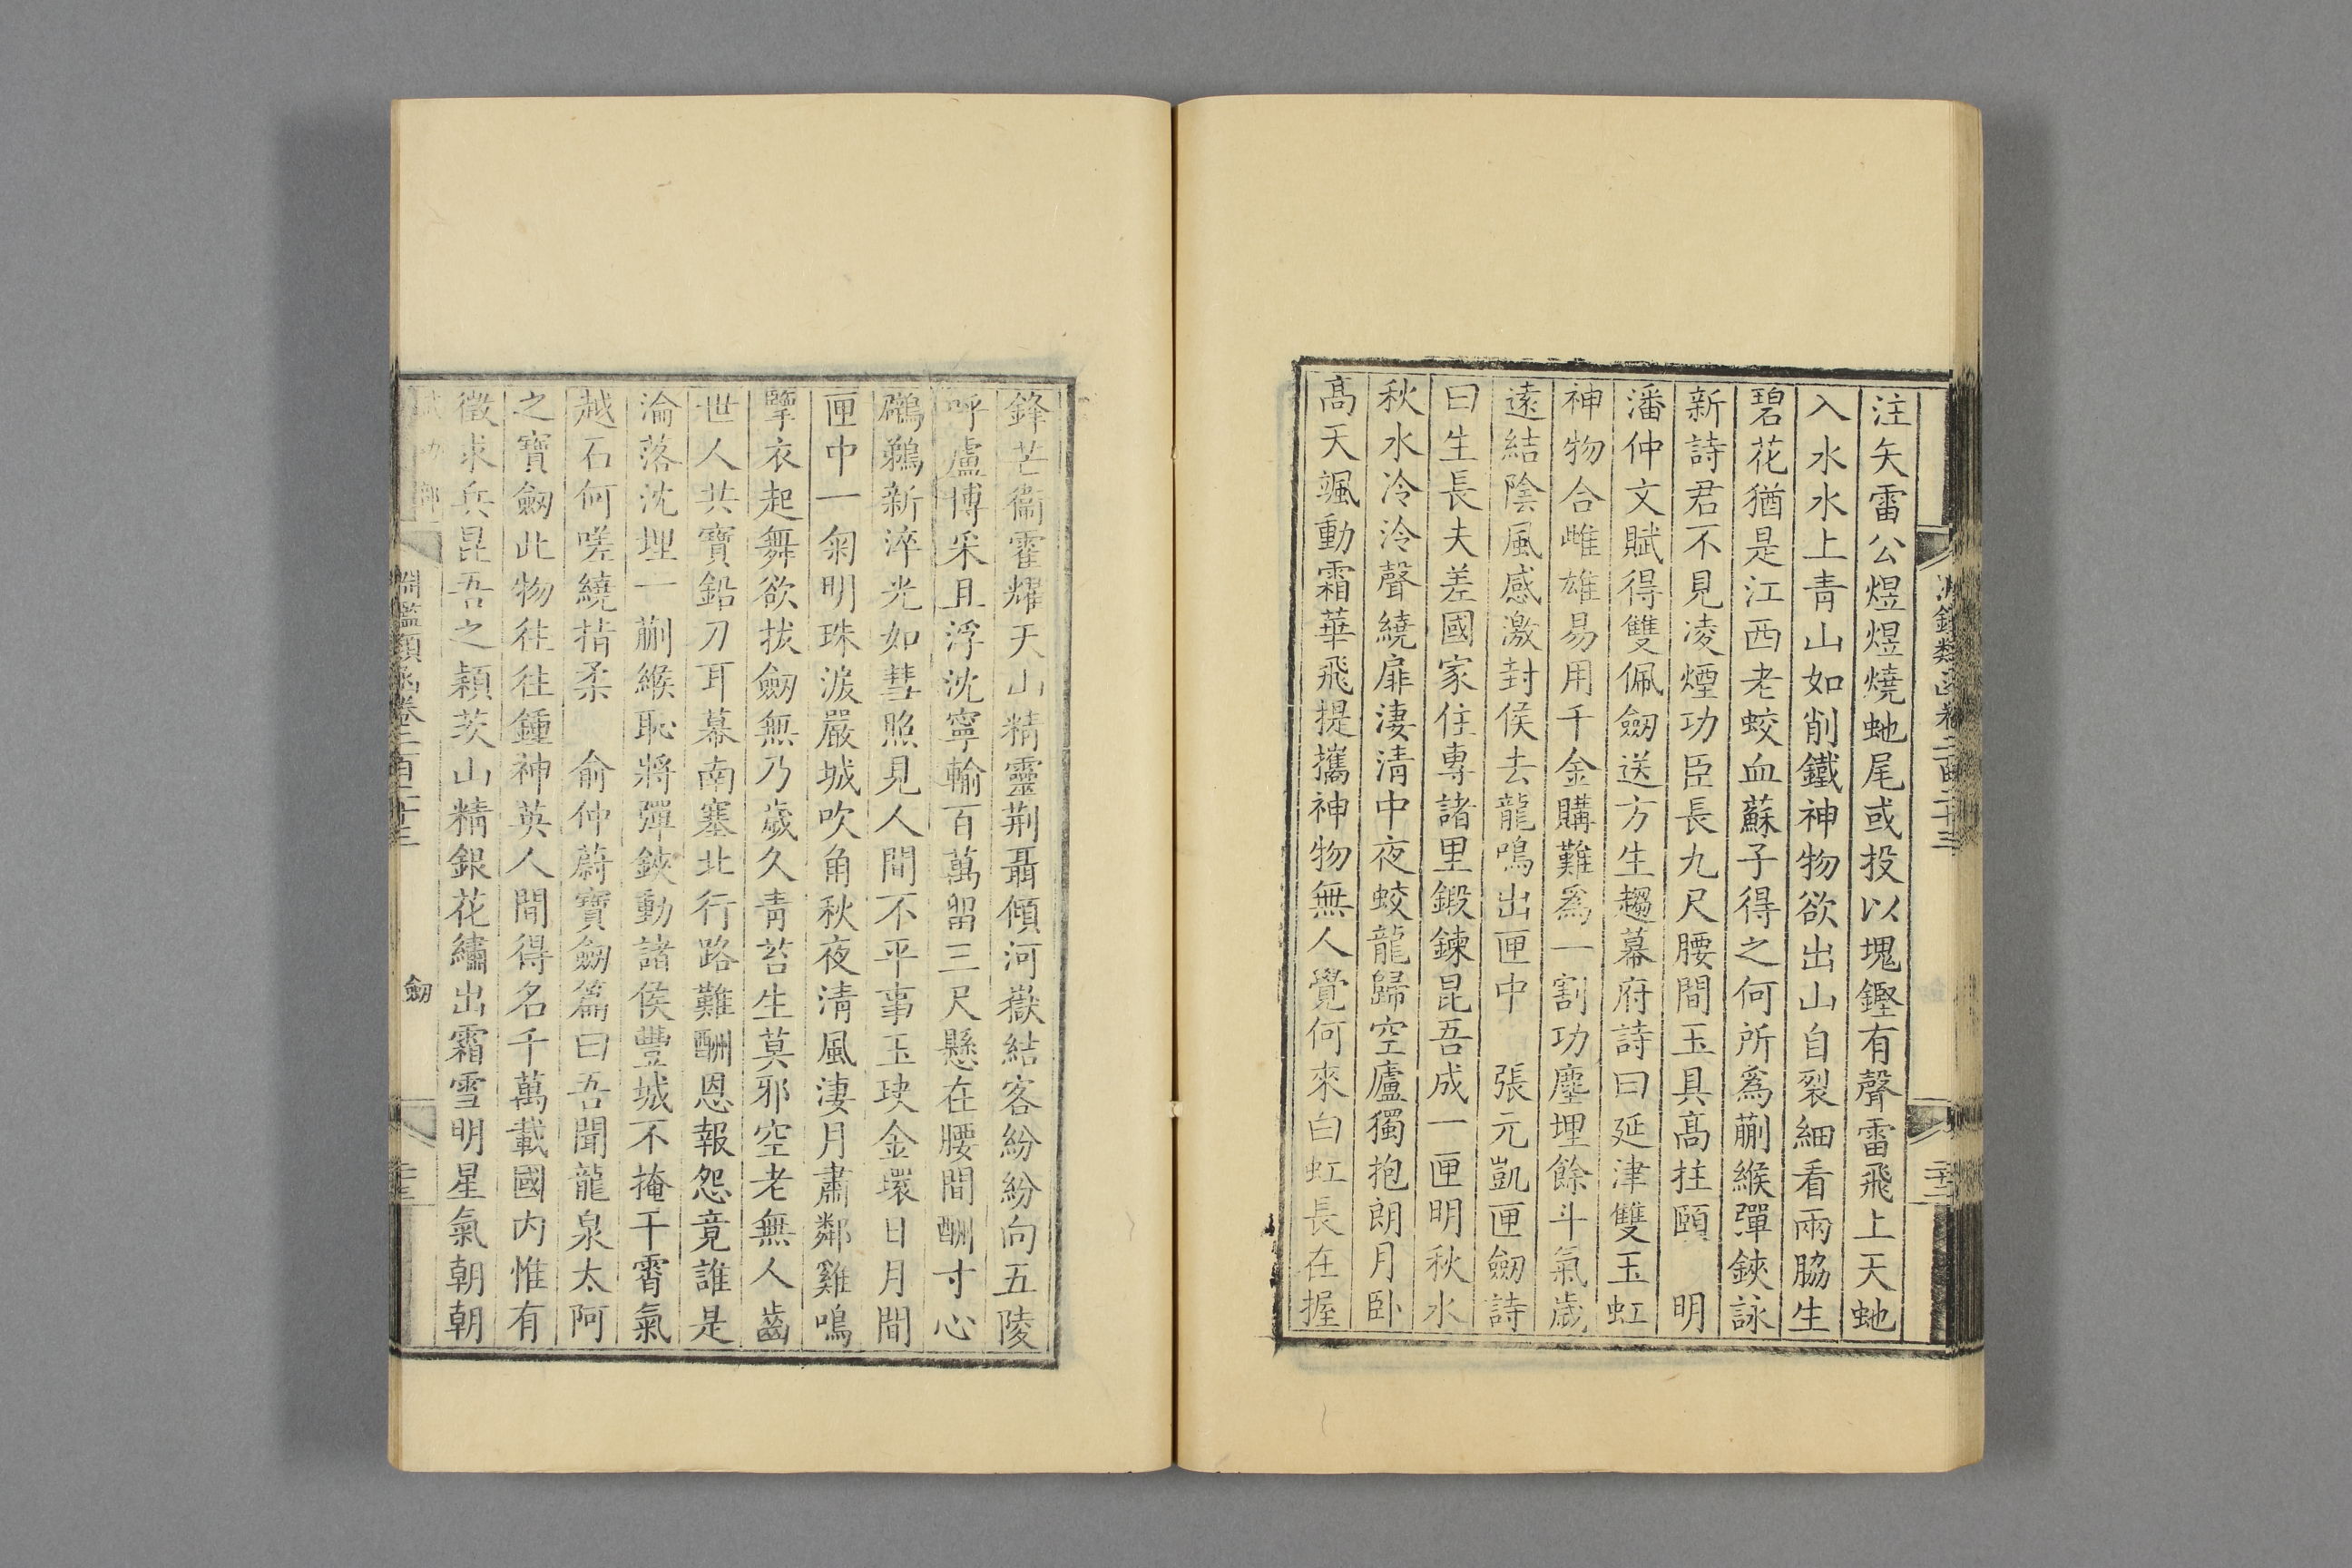 淵鑑類函卷二百二十三
二十二
注矢雷公煜煜燒虵尾或投以塊鏗有聲雷飛上天虵
入水水上青山如削鐵神物欲出山自裂細看兩脇生
碧花猶是江西老蛟血蘇子得之何所爲蒯緱彈鋏詠
新詩君不見凌煙功臣長九尺腰間玉具髙拄頤　明
潘仲文賦得雙佩劒送方生趨幕府詩曰延津雙玉虹
神物合雌雄易用千金購難爲一割功塵埋餘斗氣歲
遠結陰風感激封侯去龍鳴出匣中　張元凱匣劒詩
曰生長夫差國家住專諸里鍛鍊昆吾成一匣明秋水
秋水冷泠聲繞扉淒清中夜蛟龍歸空廬獨抱朗月卧
髙天颯動霜華飛提攜神物無人覺何來白虹長在握
鋒芒衝霍耀天山精靈荆聶傾河嶽結客紛紛向五陵
呼盧博采且浮沈寧輸百萬留三尺懸在腰間酬寸心
鸊鵜新淬光如彗照見人間不平事玉玦金環日月間
匣中一匊明珠淚嚴城吹角秋夜淸風淒月肅鄰雞鳴
擥衣起舞欲拔劒無乃歲久青苔生莫邪空老無人齒
世人共寶鉛刀耳幕南塞北行路難酬恩報怨竟誰是
淪落沈埋一蒯緱恥將彈鋏動諸侯豐城不掩干霄氣
越石何嗟繞指柔　俞仲蔚寶劒篇曰吾聞龍泉太阿
之寶劒此物往往鍾神英人間得名千萬載國内惟有
徵求兵昆吾之穎茨山精銀花繡出霜雪明星氣朝朝
武功部
淵鑑類函卷二百二十三
劒
二十三